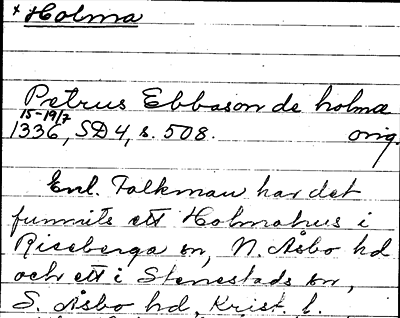 × Holma
Petrus Ebbason de holma
15-19/7
1336, SD 4, s. 508. orig.
Enl. Falkman har det
funnits ett Holmahus i
Riseberga sn, N. Åsbo hd
och ett i Stenestads sn,
S. Åsbo hd, Krist. l.